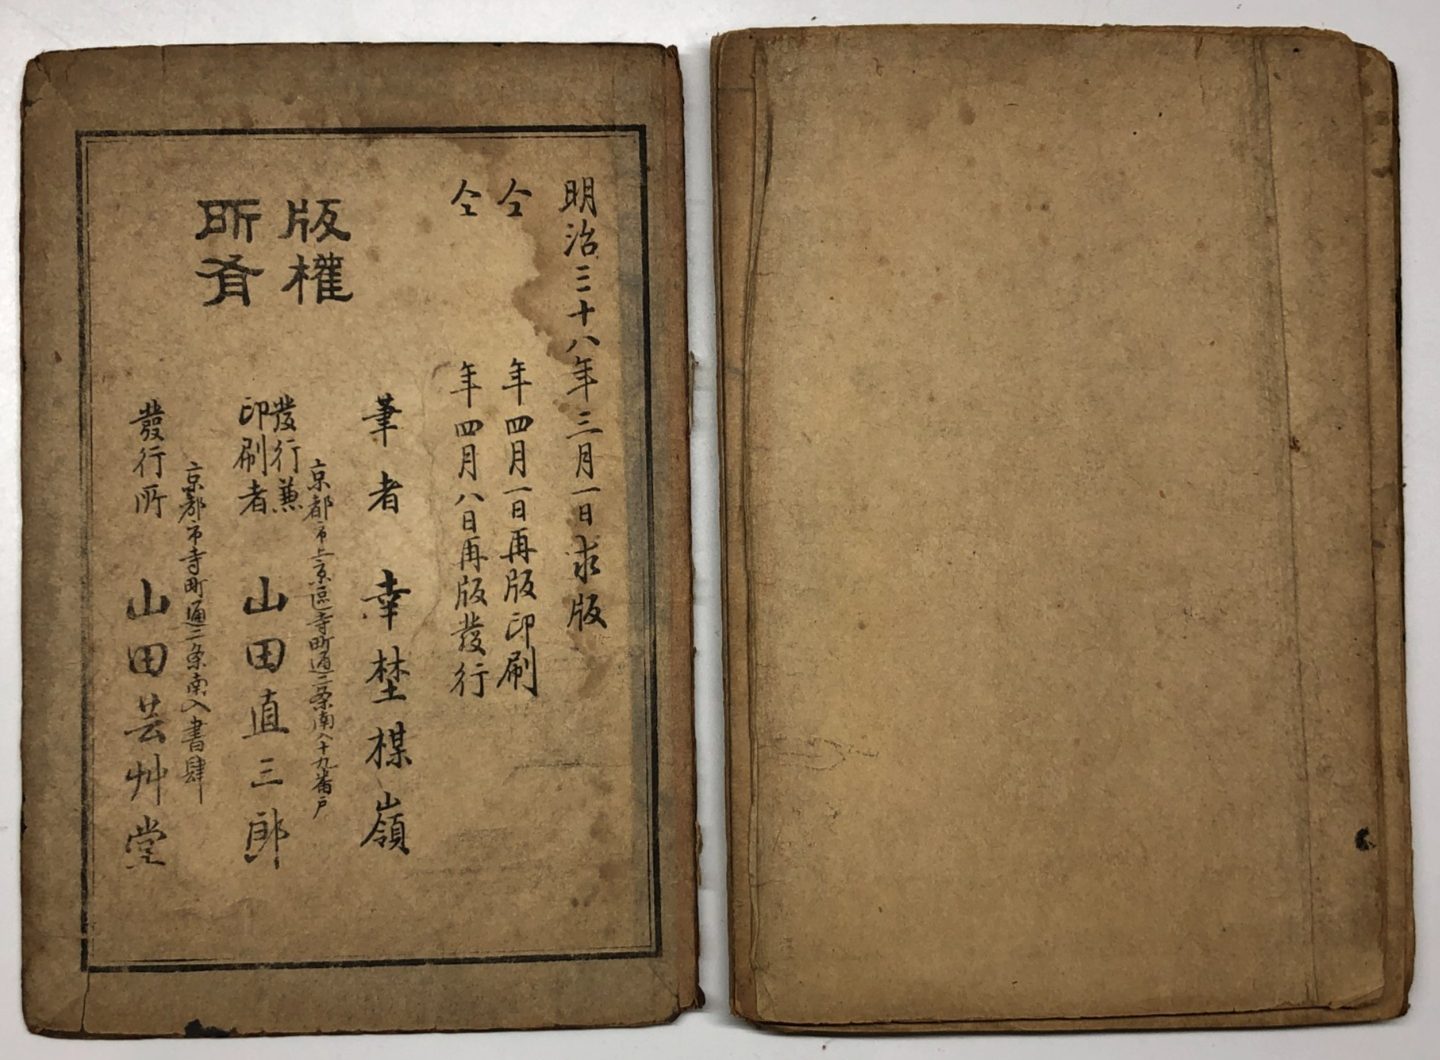 明治三十八年三月一日求版
仝 年四月一日再版印刷
仝 年四月八日再版發行
筆者 幸埜楳嶺
版權所有
京都市上京區寺町通二条南入十九番戸
發行兼印刷者 山田直三郎
京都市寺町通二条南入書肆
發行所 山田芸艸堂